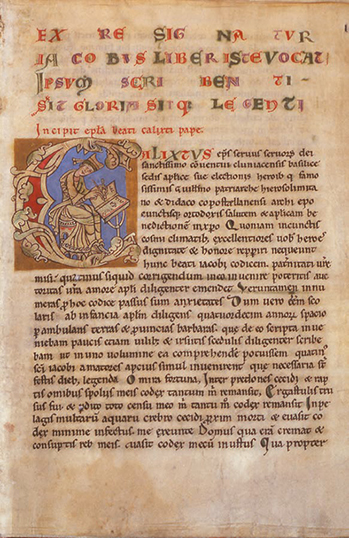 EX RE SIG NA TUR
IA CO BUS LIBER ISTE VOCAT
IPSUM SCRI BEN TI-
SIT GLORIA SIT Q LE GENTI
Incipit epla beati calixti pape.
CALIXTUS eps servus servorũ dei
sanctissimo conventui cluniacensis basilice
sedis aplice sue electionis heroib; famo
sissimis Guillmo patriarche herosolimita
no et didaco copostellanensi archi epo
cunctisq; ortodoxis salutem et aplicam be
nedictionem in xpo Quoniam in cunctis
cosmi climatib; excellentiores uob heroes
dignitate et honore repperiri nequeunt
hunc beati iacobi codicem paternitati uře
misi quatinus siquid corrigendum in eo invenire poteritis auc
toritas uřa amore apli diligenter emendet Veruntamen innu
meras p hoc codice passus sum anxietates Dum uero eẽm sco
laris ab infancia aplm diligens quatuordecim annorũ spacio
pambulans terras et provincias barbaras que de eo scripta inve
niebam paucis cciam vilib; et irsutis scedulis diligenter scribe
bam ut in uno volumine ea comprehendere potuissem quatin
sci iacobi amatores apcius simul invenirent que necessaria st
festis dieb; legenda O mira fortuna, Inter predones cecidi et rap
tis omnibus spoliis meis codex tantum m remansit, Ergastulis tru
sus fui et pdito toto censu meo m tantũ m codex remansit In pe
lagis multarũ aquarũ crebro cecidi proxim morti et evasit co
dex minime infectus me exeunte Domus qua erã cremat et
consuptis reb; meis evasit codex mecũ inustus Qua propter